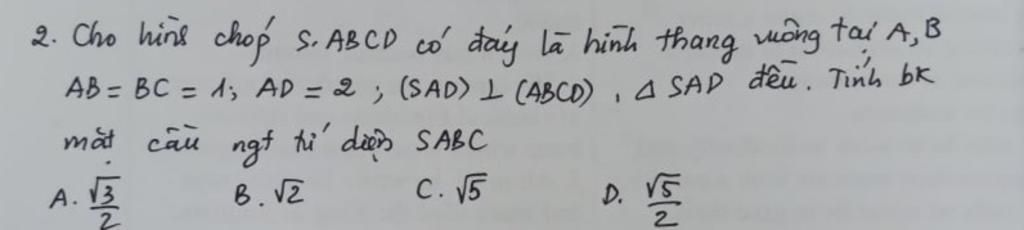 2. Cho hình chóp S.ABCD có đáy là hình thang vuông tại A, B
AB = BC = 1; AD = 2; (SAD) ⊥ (ABCD), Δ SAD đều. Tính bk
mặt cầu ngt tứ diện SABC
A. √3/2 B. √2 C. √5 D. √5/2